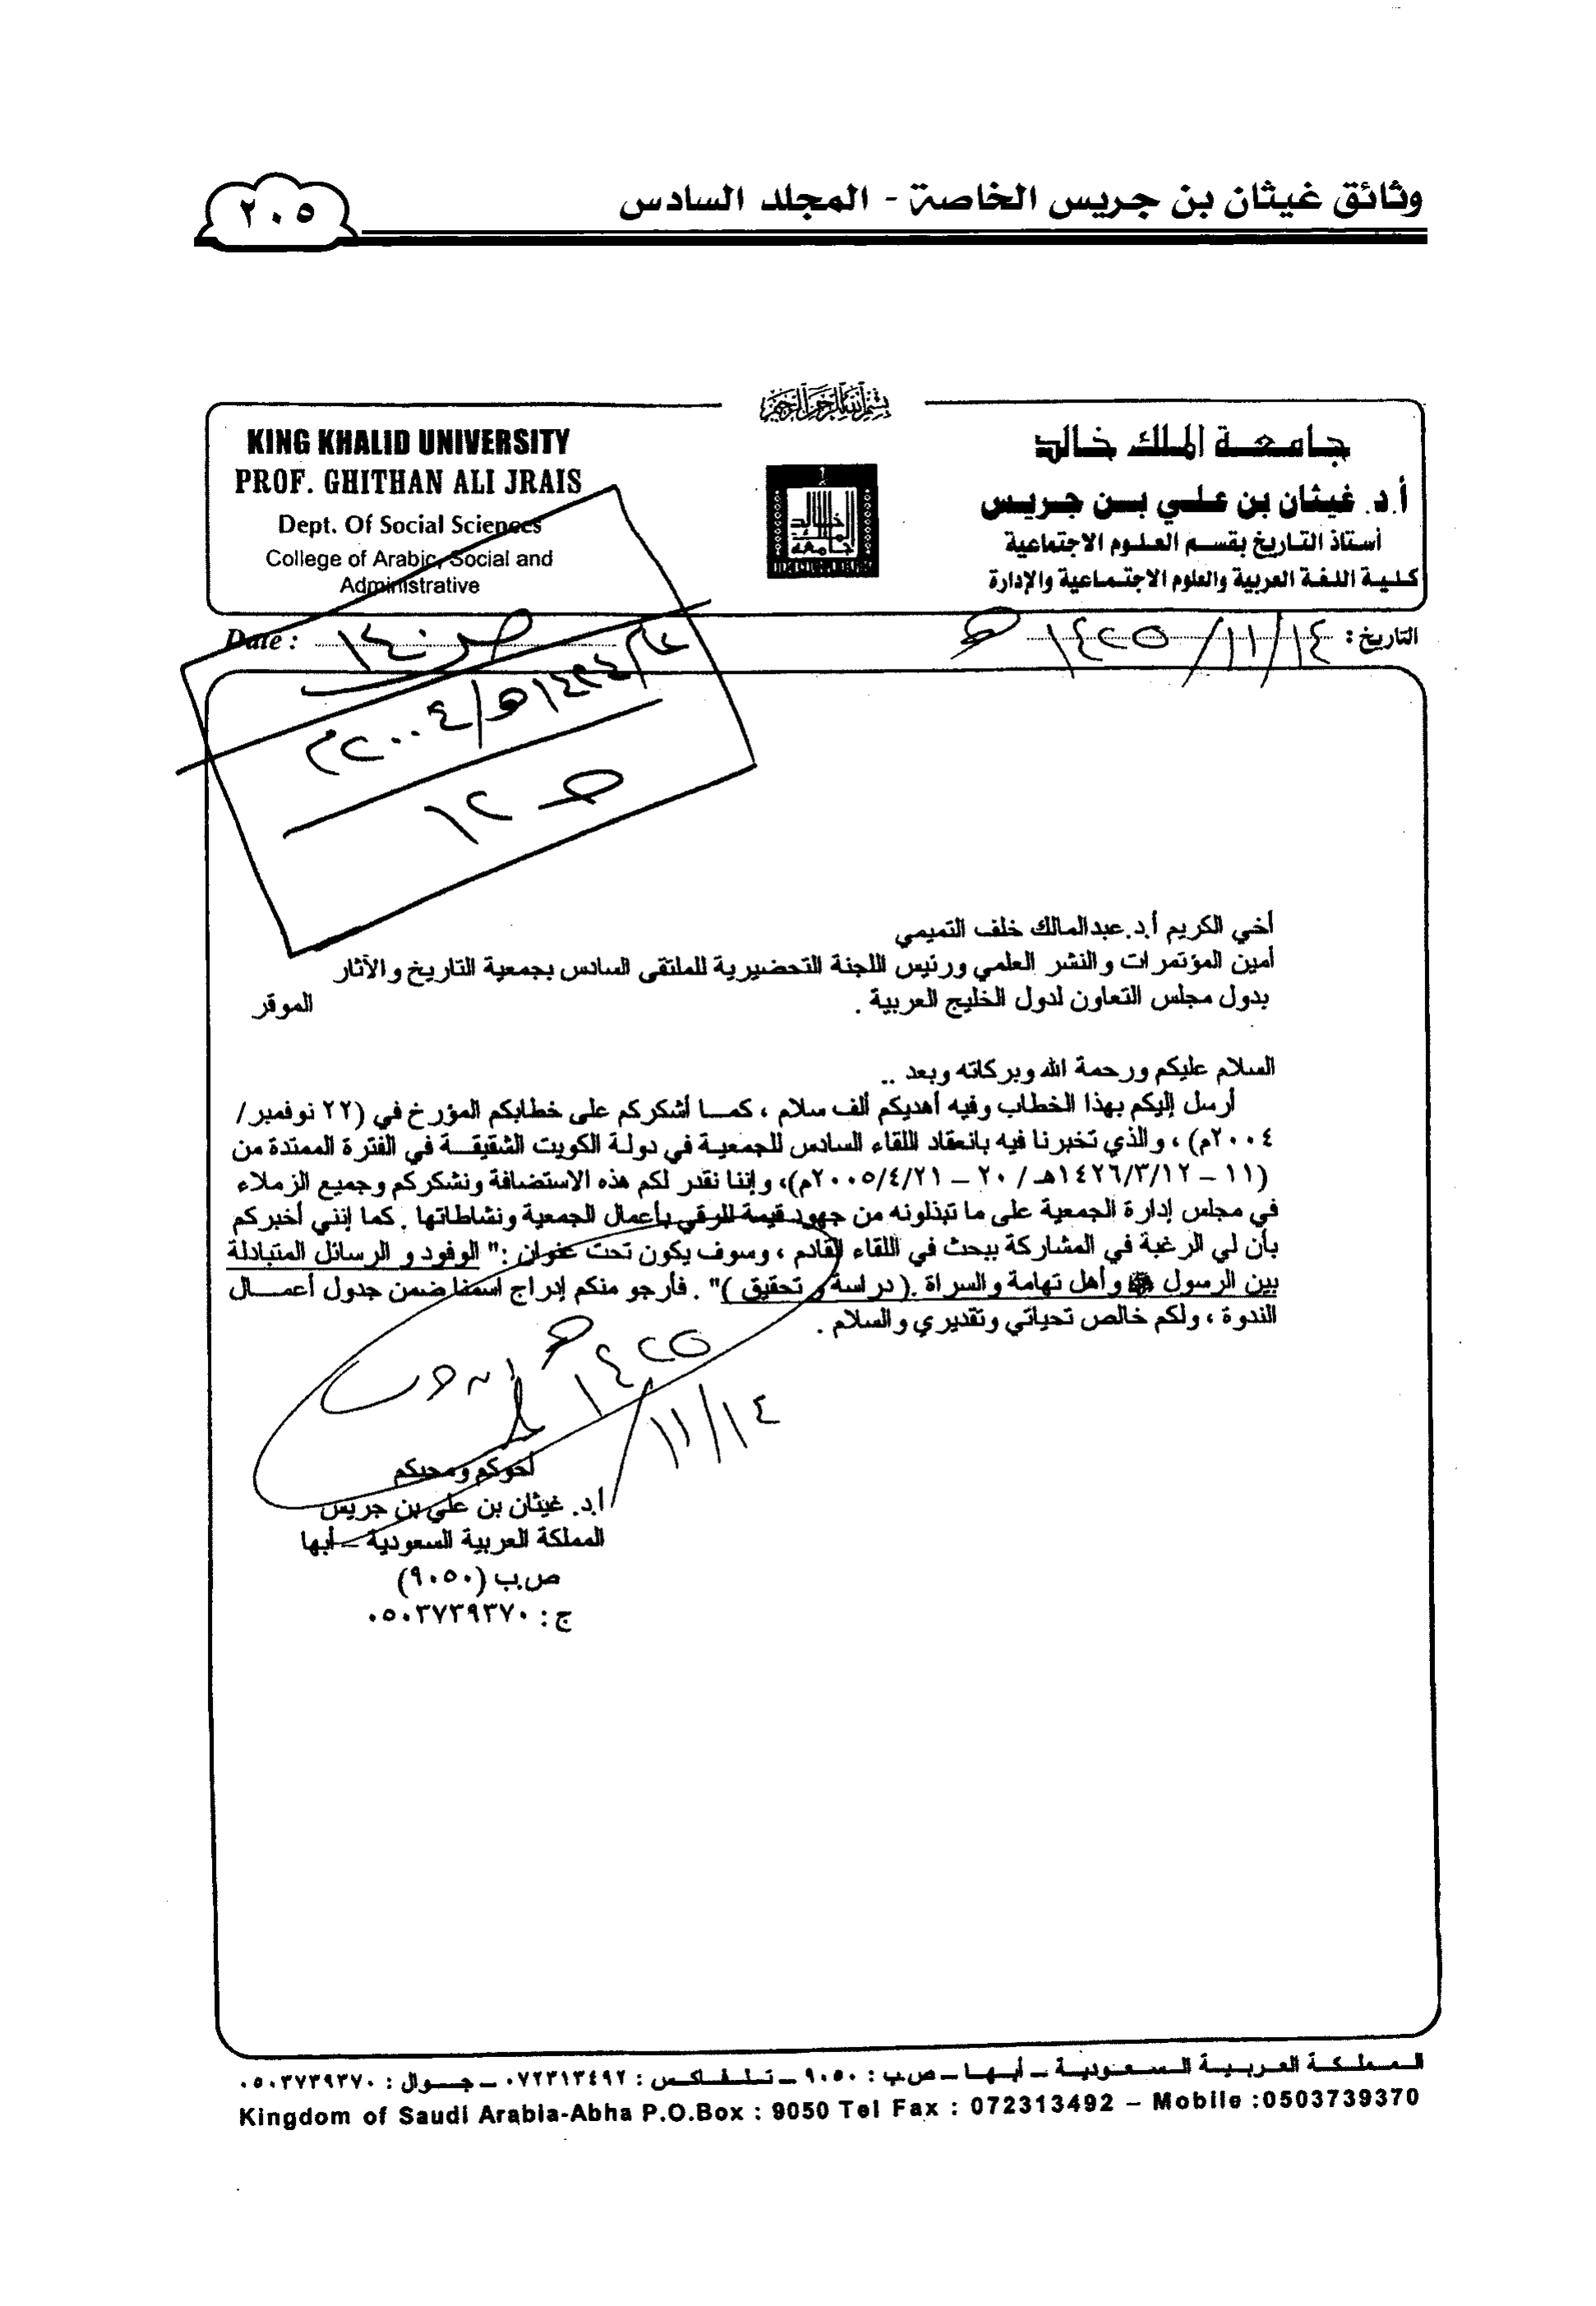 وثائق غيثان بن جريس الخاصة - المجلد السادس
٢٠٥
بسم الله الرحمن الرحيم
جامعة الملك خالد
أ.د. غيثان بن علي بن جريس
أستاذ التاريخ بقسم العلوم الاجتماعية
كلية اللغة العربية والعلوم الاجتماعية والإدارة
KING KHALID UNIVERSITY
PROF. GHITHAN ALI JRAIS
Dept. Of Social Sciences
College of Arabic, Social and
Administrative
التاريخ: ١٤/١١/١٤٢٥هـ
Date :
أخي الكريم أ.د.عبدالمالك خلف التميمي
أمين المؤتمرات والنشر العلمي ورئيس اللجنة التحضيرية للملتقى السادس بجمعية التاريخ والآثار
بدول مجلس التعاون لدول الخليج العربية . الموقر
السلام عليكم ورحمة الله وبركاته وبعد ..
أرسل إليكم بهذا الخطاب وفيه أهديكم ألف سلام ، كما أشكركم على خطابكم المؤرخ في (٢٢ نوفمبر/
٢٠٠٤م) ، والذي تخبرنا فيه بانعقاد اللقاء السادس للجمعية في دولة الكويت الشقيقة في الفترة الممتدة من
(١١ – ١٤٢٦/٣/١٢هـ / ٢٠ – ٢٠٠٥/٤/٢١م)، وإننا نقدر لكم هذه الاستضافة ونشكركم وجميع الزملاء
في مجلس إدارة الجمعية على ما تبذلونه من جهود قيمة للرقي بأعمال الجمعية ونشاطاتها . كما إنني أخبركم
بأن لي الرغبة في المشاركة ببحث في اللقاء القادم ، وسوف يكون تحت عنوان :" الوفود و الرسائل المتبادلة
بين الرسول ﷺ وأهل تهامة والسراة .( دراسة و تحقيق )" . فأرجو منكم إدراج اسمنا ضمن جدول أعمال
الندوة ، ولكم خالص تحياتي وتقديري والسلام .
١٤/١١/١٤٢٥هـ
أخوكم ومحبكم
أ.د. غيثان بن علي بن جريس
المملكة العربية السعودية – أبها
ص.ب (٩٠٥٠)
ج : ٠٥٠٣٧٣٩٣٧٠
المملكة العربية السعودية – أبها – ص.ب : ٩٠٥٠ – تلفاكس : ٠٧٢٣١٣٤٩٢ – جوال : ٠٥٠٣٧٣٩٣٧٠
Kingdom of Saudi Arabia-Abha P.O.Box : 9050 Tel Fax : 072313492 – Mobile :0503739370